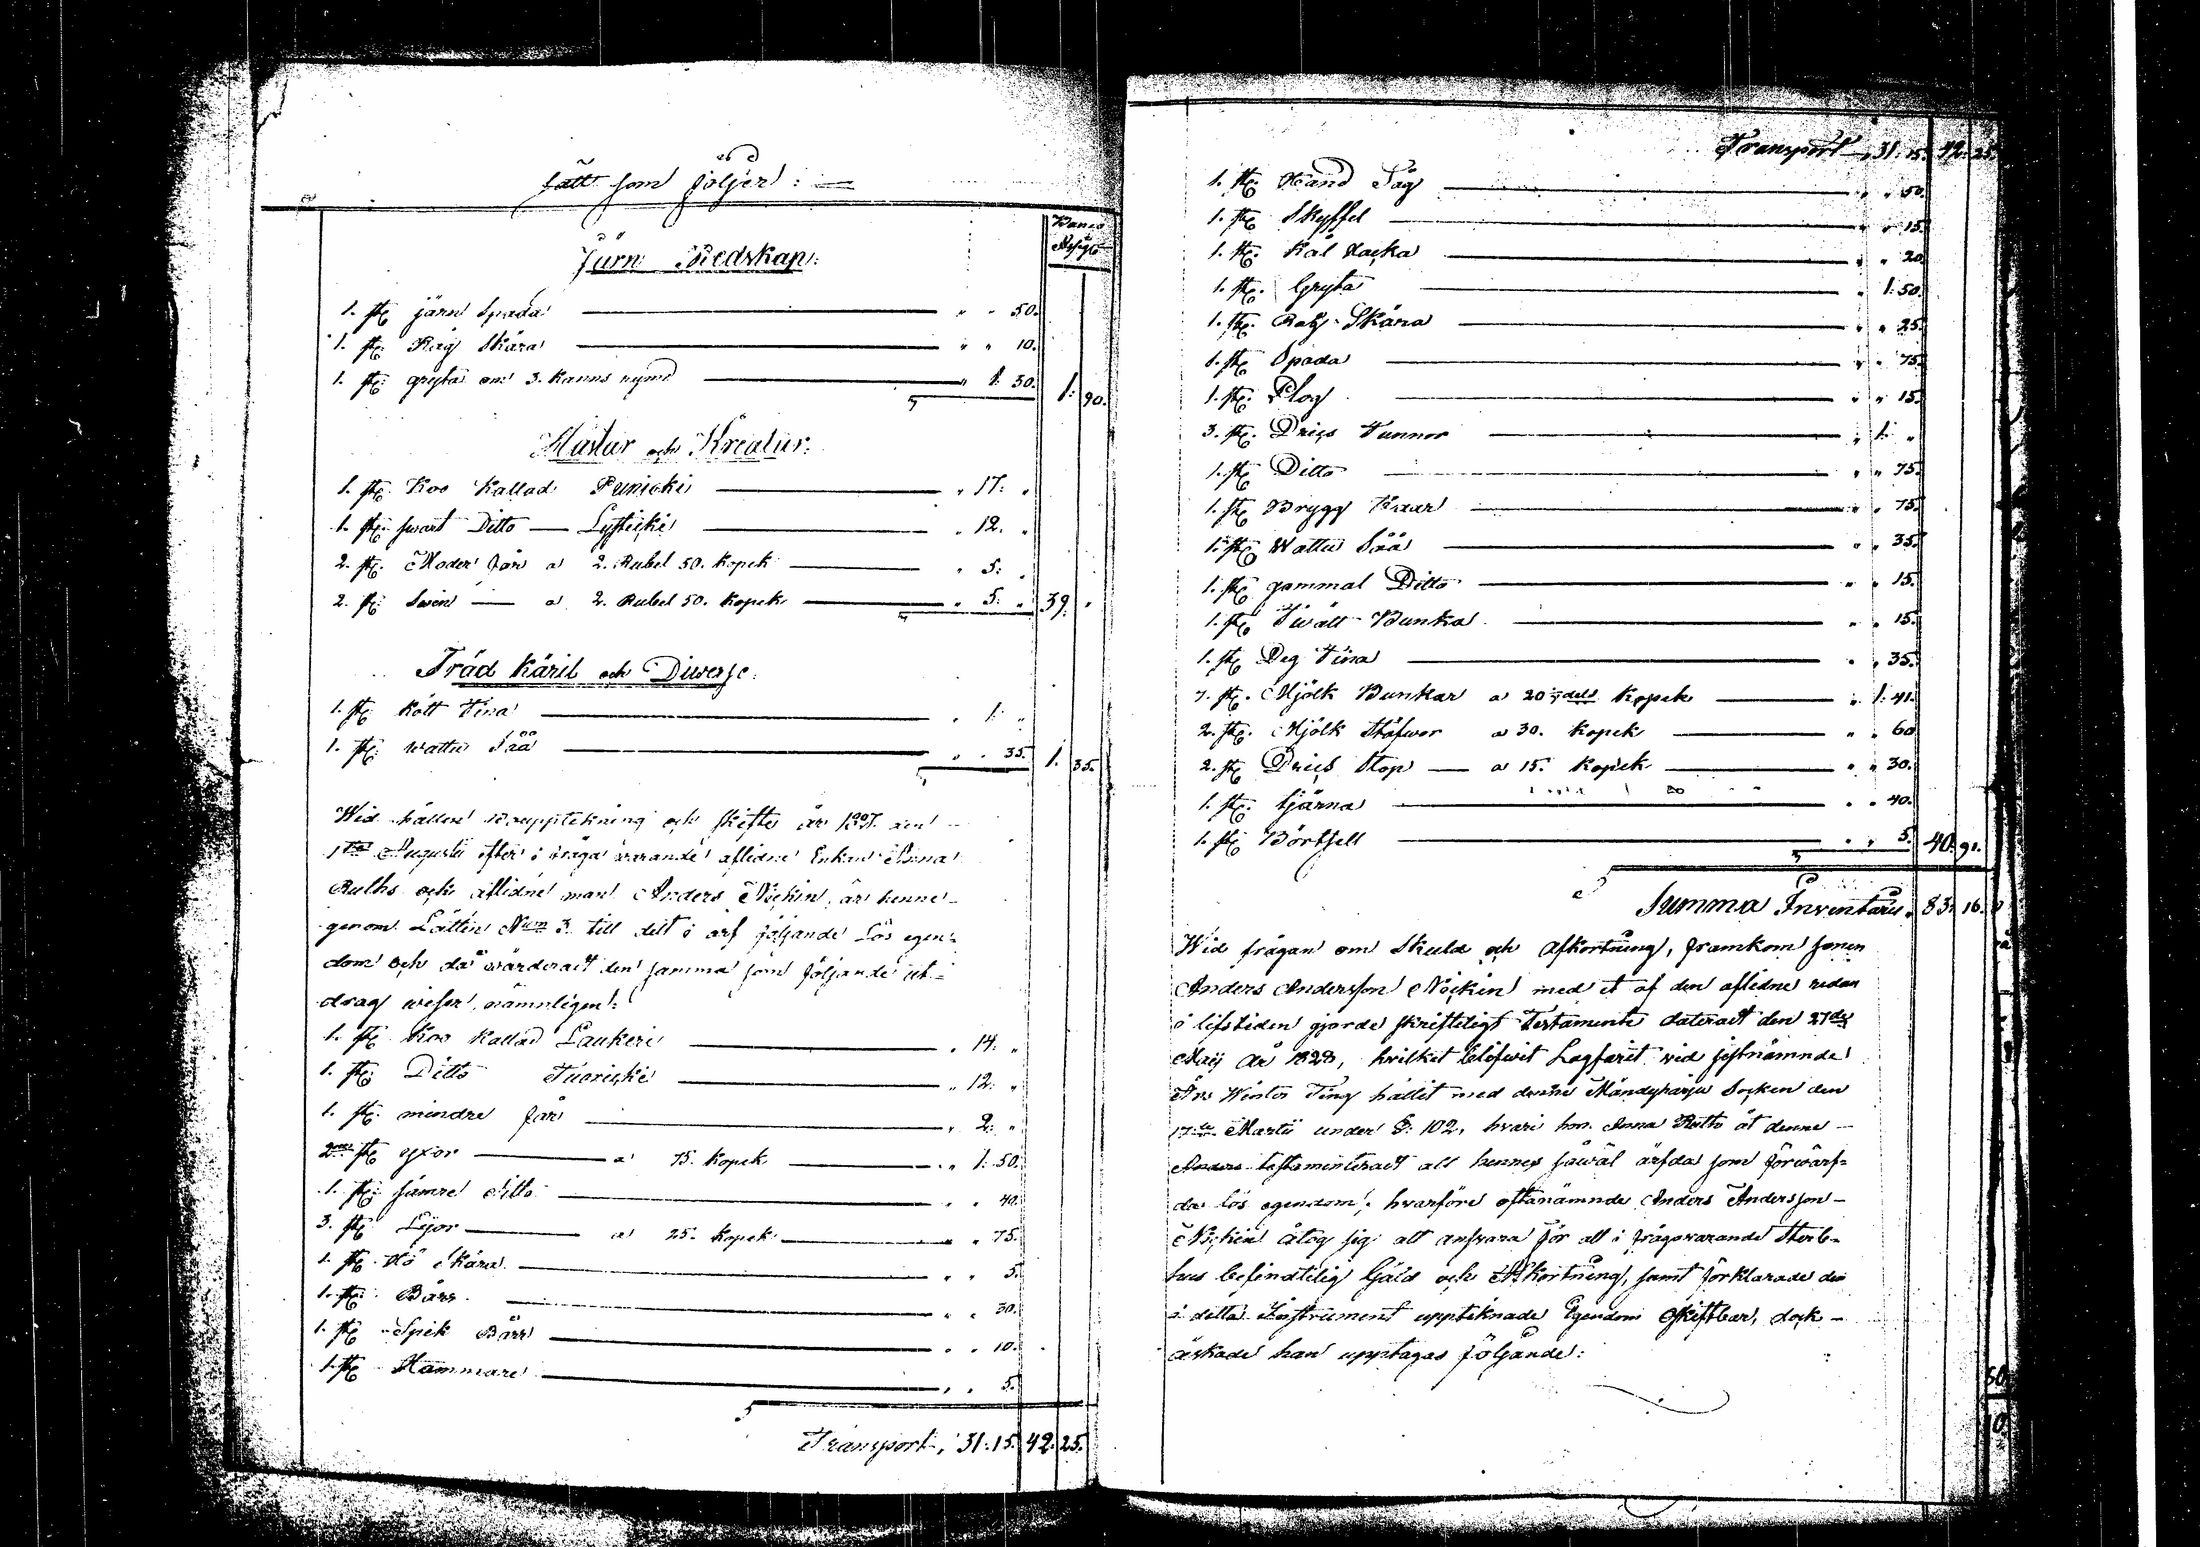 sätt som följer: —
Banco
Assigt:
Järn Redskap:
1. st: järn Spada " " 50.
1. st: Råg Skära " " 10.
1. st: gryta om 3. Kanns rymd " 1: 30. 1: 90.
Hästar och Kreatur:
1. st: Koo Kallad Punicki " 17: "
1. st: swart Ditto — Lysticki " 12. "
2. st: Moder får a 2. Rubel 50. Kopek " 5: "
2. st: Swin — a 2. Rubel 50. Kopek " 5: " 39: "
Träd Käril och Diverse:
1. st: Kött Tina " 1: "
1. st: wattu Såå " " 35. 1. 35.
Wid hållen och skifte år 1807. den
1sta Augusti efter i fråga varande aflidne Enkan Anna
Ruths och aflidne man Anders Nickin, är henne
genom Lotten Num 3. till delt i arf följande Lös egen-
dom och då värderadt den samma som följande ut-
drag wiser, nämnligen:
1. st: Koo Kallad Laukeri " 14: "
1. st: Ditto Tuoricki " 12: "
1. st: mindre får " 2: "
2. st: yxor a 75. Kopek " 1: 50.
1. st: sämre ditto " " 40.
3. st: Lijor a 25. Kopek " " 75.
1. st: Hö Skära " " 5.
1. st: Bårr " " 30.
1. st: Spik Bårr " " 10.
1. st: Hammare " " 5.
Transport, 31: 15. 42. 25.
Transport, 31: 15. 42: 25.
1. st: Hand Såg " " 50.
1. st: Skyffel " " 15.
1. st: Kål Hacka " " 20
1. st: Gryta " 1: 50.
1. st: Råg Skära " " 25.
1. st: Spada " " 75.
1. st: Plog " " 15.
3. st: Drics Tunnor " 1: "
1. st: Ditto " " 75.
1. st: Brygg Kaar " " 75.
1. st: Wattu Såå " " 35.
1. st: gammal Ditto " " 15.
1. st: Twätt Bunka " " 15.
1. st: Deg Tina " " 35.
7. st: Mjölk Bunkar a 20 Kopek " 1: 41.
2. st: Mjölk Stäfwor a 30. Kopek " " 60
2. st: Drics Stop — a 15. Kopek " " 30.
1. st: tjärna " " 40.
1. st: Börtsell " " 5. 40. 91.
Summa Inventarii. 83: 16.
Wid frågan om Skuld och Afkortning, framkom sonen
Anders Andersson Nickin med et af den aflidne redan
i lifstiden gjorde skrifteligt Testamente daterat den 27de
Maij År 1828, hvilket blifwit Lagfarit vid sistnämnde
Års Winter Ting hållit med denne Mändyharju Socken den
17:de Martii under §: 102, hvari hon Anna Ruths åt denne —
testamenteradt all hennes såwäl ärfda som förwärf-
da lös egendom; hvarföre oftanämnde Anders Andersson —
Nickin åtog sig att answara för all i frågavarande Sterb-
hus befindtelig Gäld och Afkortning, samt förklarade den
i detta Instrument uppteknade Egendom oskiftbar, dock —
äskade han upptagas följande:
50.
10.